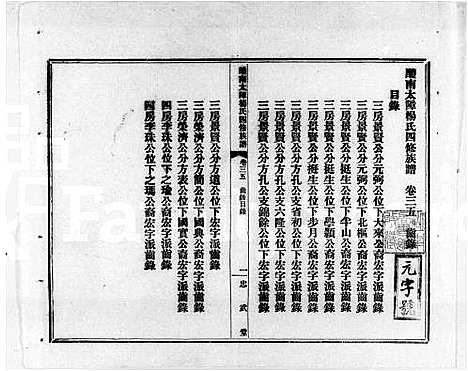 醴南太陂楊氏四修族譜 卷三五 齒錄
目錄
三房景賢公分元弼公位下大來公裔宏字派齒錄
三房景賢公分元弼公位下北樞公裔宏字派齒錄
三房景賢公分挺生公位下半山公裔宏字派齒錄
三房景賢公分挺生公位下學穎公裔宏字派齒錄
三房景賢公分挺生公位下步月公裔宏字派齒錄
三房景賢公分方孔公支省初公位下宏字派齒錄
三房景賢公分方孔公支六隆公位下宏字派齒錄
三房景賢公分方孔公支錫餘公位下宏字派齒錄
元字號
醴南太陂楊氏四修族譜 卷三五 齒錄目錄 一 忠武堂
三房景賢公分方遠公位下宏字派齒錄
三房景賢公分方簡公位下宏字派齒錄
三房榮濟公分方表公位下國貞公裔宏字派齒錄
三房榮濟公分方表公位下國賓公裔宏字派齒錄
四房季珠公位下之瑜公裔宏字派齒錄
四房季珠公位下之瑪公裔宏字派齒錄